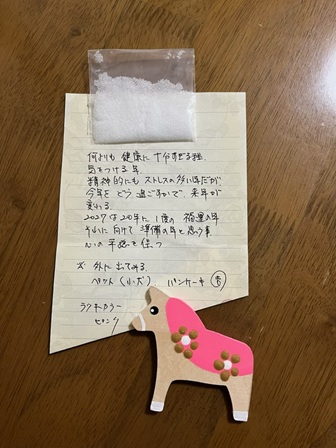 何よりも 健康に 十分すぎる程
気をつける年
精神的にも ストレスの多い年だが
今年を どう 過ごすかで、来年が
変わる
2027は20年に1度の 強運の年
それに向けて 準備の年と思う事
心の平穏を保つ
※ 外に出てみる
ペット(小犬) パンケーキ
ラッキーカラー
ピンク